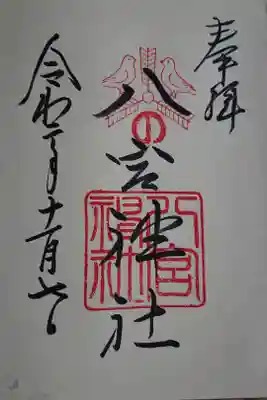 奉拝
八の宮神社
八宮神社
令和二年十一月七日